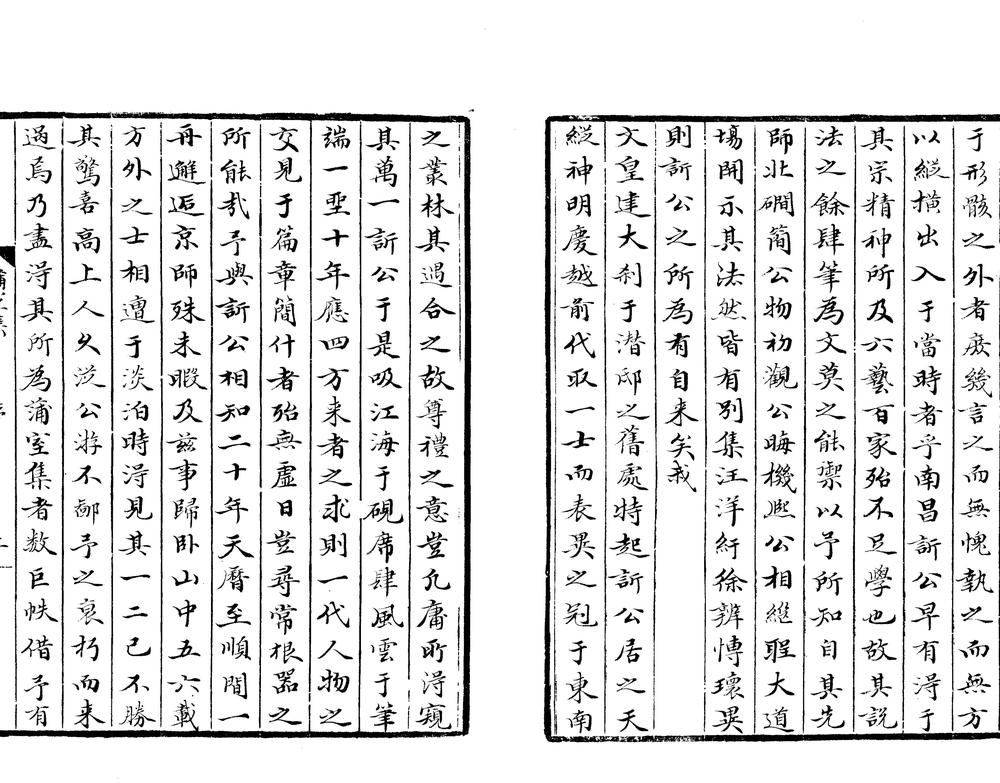 于形骸之外者庶幾言之而無愧執之而無方
以縱橫出入于當時者乎南昌訢公早有淂于
其宗精神所及六藝百家殆不足學也故其說
法之餘肆筆為文莫之能禦以予所知自其先
師北磵簡公物初觀公晦機熙公相繼坐大道
塲開示其法然皆有別集汪洋紆徐辨博瓌異
則訢公之所為有自来矣我
文皇建大刹于潛邸之舊處特起訢公居之天
縱神明度越前代取一士而表異之冠于東南
之叢林其遇合之故尊禮之意豈凡庸所淂窺
其萬一訢公于是吸江海于硯席肆風雲于筆
端一坐十年應四方来者之求則一代人物之
交見于篇章簡什者殆無虛日豈尋常根器之
所能哉予與訢公相知二十年天曆至順間一
再邂逅京師殊未暇及茲事歸卧山中五六載
方外之士相遭于淡泊時淂見其一二已不勝
其驚喜高上人久從公游不鄙予之衰朽而来
過焉乃盡淂其所為蒲室集者数巨帙借予有
蒲室集
序